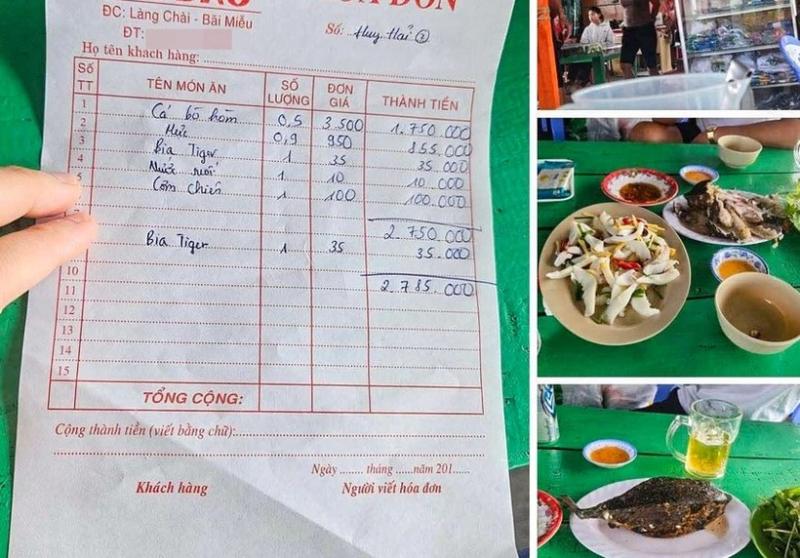 HÓA ĐƠN
ĐC: Làng Chài - Bãi Miễu
ĐT:
Số: Huy Hải 2
Họ tên khách hàng:
Số TT TÊN MÓN ĂN SỐ LƯỢNG ĐƠN GIÁ THÀNH TIỀN
1 Cá bò hòm 0,5 3.500 1.750.000
2 Mực 0,9 950 855.000
3 Bia Tiger 1 35 35.000
4 Nước suối 1 10 10.000
5 Cơm chiên 1 100 100.000
2.750.000
Bia Tiger 1 35 35.000
10
11 2.785.000
12
13
14
15
TỔNG CỘNG:
Cộng thành tiền (viết bằng chữ):
Ngày ........ tháng ......năm 201.....
Khách hàng Người viết hóa đơn